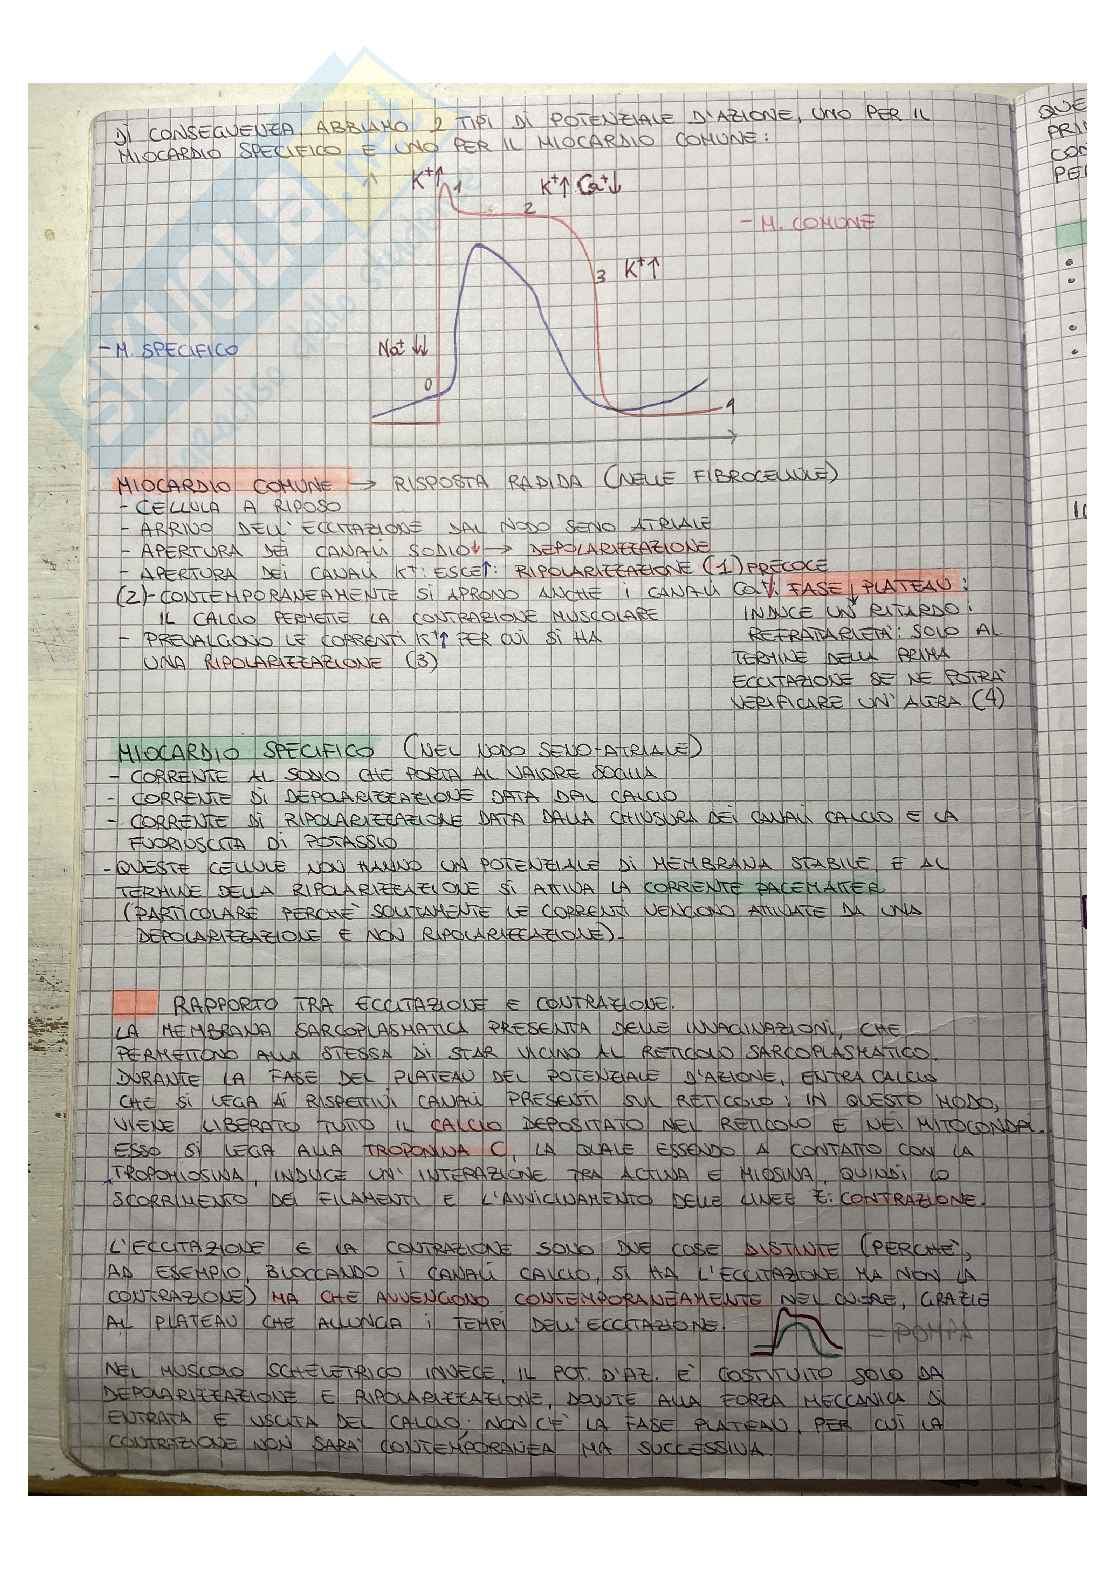 DI CONSEGUENZA ABBIAMO 2 TIPI DI POTENZIALE D'AZIONE, UNO PER IL
MIOCARDIO SPECIFICO E UNO PER IL MIOCARDIO COMUNE:
K+↑ 1
2
K+↑ Ca+↓
- M. COMUNE
3 K+↑
- M. SPECIFICO
Na+ ↓↓
0
4
MIOCARDIO COMUNE → RISPOSTA RADIDA (NELLE FIBROCELLULE)
- CELLULA A RIPOSO
- ARRIVO DELL'ECCITAZIONE DAL NODO SENO ATRIALE
- APERTURA DEI CANALI SODIO↓ → DEPOLARIZZAZIONE
- APERTURA DEI CANALI K+: ESCE↑: RIPOLARIZZAZIONE (1) PRECOCE
(2)- CONTEMPORANEAMENTE SI APRONO ANCHE I CANALI Ca+↓: FASE PLATEAU:
IL CALCIO PERMETTE LA CONTRAZIONE MUSCOLARE
- PREVALGONO LE CORRENTI K+↑ PER CUI SI HA
UNA RIPOLARIZZAZIONE (3)
INDUCE UN RITARDO:
REFRATARLETÀ: SOLO AL
TERMINE DELLA PRIMA
ECCITAZIONE SE NE POTRÀ
VERIFICARE UN'ALTRA (4)
MIOCARDIO SPECIFICO (NEL NODO SENO-ATRIALE)
- CORRENTE AL SODIO CHE PORTA AL VALORE SOGLIA
- CORRENTE DI DEPOLARIZZAZIONE DATA DAL CALCIO
- CORRENTE DI RIPOLARIZZAZIONE DATA DALLA CHIUSURA DEI CANALI CALCIO E LA
FUORIUSCITA DI POTASSIO
- QUESTE CELLULE NON HANNO UN POTENZIALE DI MEMBRANA STABILE E AL
TERMINE DELLA RIPOLARIZZAZIONE SI ATTIVA LA CORRENTE PACEMAKER
(PARTICOLARE PERCHÈ SOLITAMENTE LE CORRENTI VENGONO ATTIVATE DA UNA
DEPOLARIZZAZIONE E NON RIPOLARIZZAZIONE).
RAPPORTO TRA ECCITAZIONE E CONTRAZIONE.
LA MEMBRANA SARCOPLASMATICA PRESENTA DELLE INVAGINAZIONI, CHE
PERMETTONO ALLA STESSA DI STAR VICINO AL RETICOLO SARCOPLASMATICO.
DURANTE LA FASE DEL PLATEAU DEL POTENZIALE D'AZIONE, ENTRA CALCIO
CHE SI LEGA AI RISPETTIVI CANALI PRESENTI SUL RETICOLO: IN QUESTO MODO,
VIENE LIBERATO TUTTO IL CALCIO DEPOSITATO NEL RETICOLO E NEI MITOCONDRI.
ESSO SI LEGA ALLA TROPONINA C, LA QUALE ESSENDO A CONTATTO CON LA
TROPOMIOSINA, INDUCE UN'INTERAZIONE TRA ACTINA E MIOSINA, QUINDI LO
SCORRIMENTO DEI FILAMENTI E L'AVVICINAMENTO DELLE LINEE Z: CONTRAZIONE.
L'ECCITAZIONE E LA CONTRAZIONE SONO DUE COSE DISTINTE (PERCHÈ,
AD ESEMPIO, BLOCCANDO I CANALI CALCIO, SI HA L'ECCITAZIONE MA NON LA
CONTRAZIONE) MA CHE AVVENGONO CONTEMPORANEAMENTE NEL CUORE, GRAZIE
AL PLATEAU CHE ALLUNGA I TEMPI DELL'ECCITAZIONE.
- POMPA
NEL MUSCOLO SCHELETRICO INVECE, IL POT. D'AZ. È COSTITUITO SOLO DA
DEPOLARIZZAZIONE E RIPOLARIZZAZIONE, DOVUTE ALLA FORZA MECCANICA DI
ENTRATA E USCITA DEL CALCIO; NON C'È LA FASE PLATEAU, PER CUI LA
CONTRAZIONE NON SARÀ CONTEMPORANEA MA SUCCESSIVA.